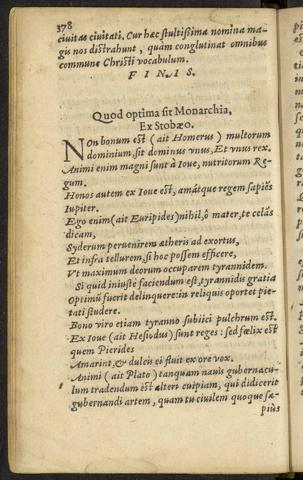 378
ciuitas ciuitati. Cur hæc stultissima nomina ma-
gis nos distrahunt, quàm conglutinat omnibus
commune Christi vocabulum.
F I N I S.
Quod optima sit Monarchia,
Ex Stobæo.
NOn bonum est (ait Homerus) multorum
dominium. sit dominus vnus, Et vnus rex.
Animi enim magni sunt à Ioue, nutritorum Re-
gum.
Honos autem ex Ioue est, amátque regem sapiēs
Iupiter.
Ego enim (ait Euripides) nihil, ô mater, te celās
dicam,
Syderum peruenirem ætheris ad exortus,
Et infra tellurem, si hoc possem efficere,
Vt maximum deorum occuparem tyrannidem.
Si quid iniustè faciendum est, tyrannidis gratia
Optimū fuerit delinquere: in reliquis oportet pie-
tati studere.
Bono viro etiam tyranno subiici pulchrum est.
Ex Ioue (ait Hesiodus) sunt reges: sed fœlix est
quem Pierides
Amarint, & dulcis ei fluit ex ore vox.
Animi (ait Plato) tanquam nauis gubernacu-
lum tradendum est alteri cuipiam, qui didicerit
gubernandi artem, quam tu ciuilem quoque sæ-
piùs